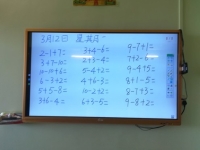 3月12日 星期六
2-1+7= 3+4-6= 9-7+1=
3+7-10= 2+3-4= 7+2-6=
10-10+6= 5-4+2= 9-9+5=
6-3+2= 4+6-3= 8+1-5=
5+5-8= 10-2+2= 8-7+3=
3+6-4= 6+3-5= 9-8+2=